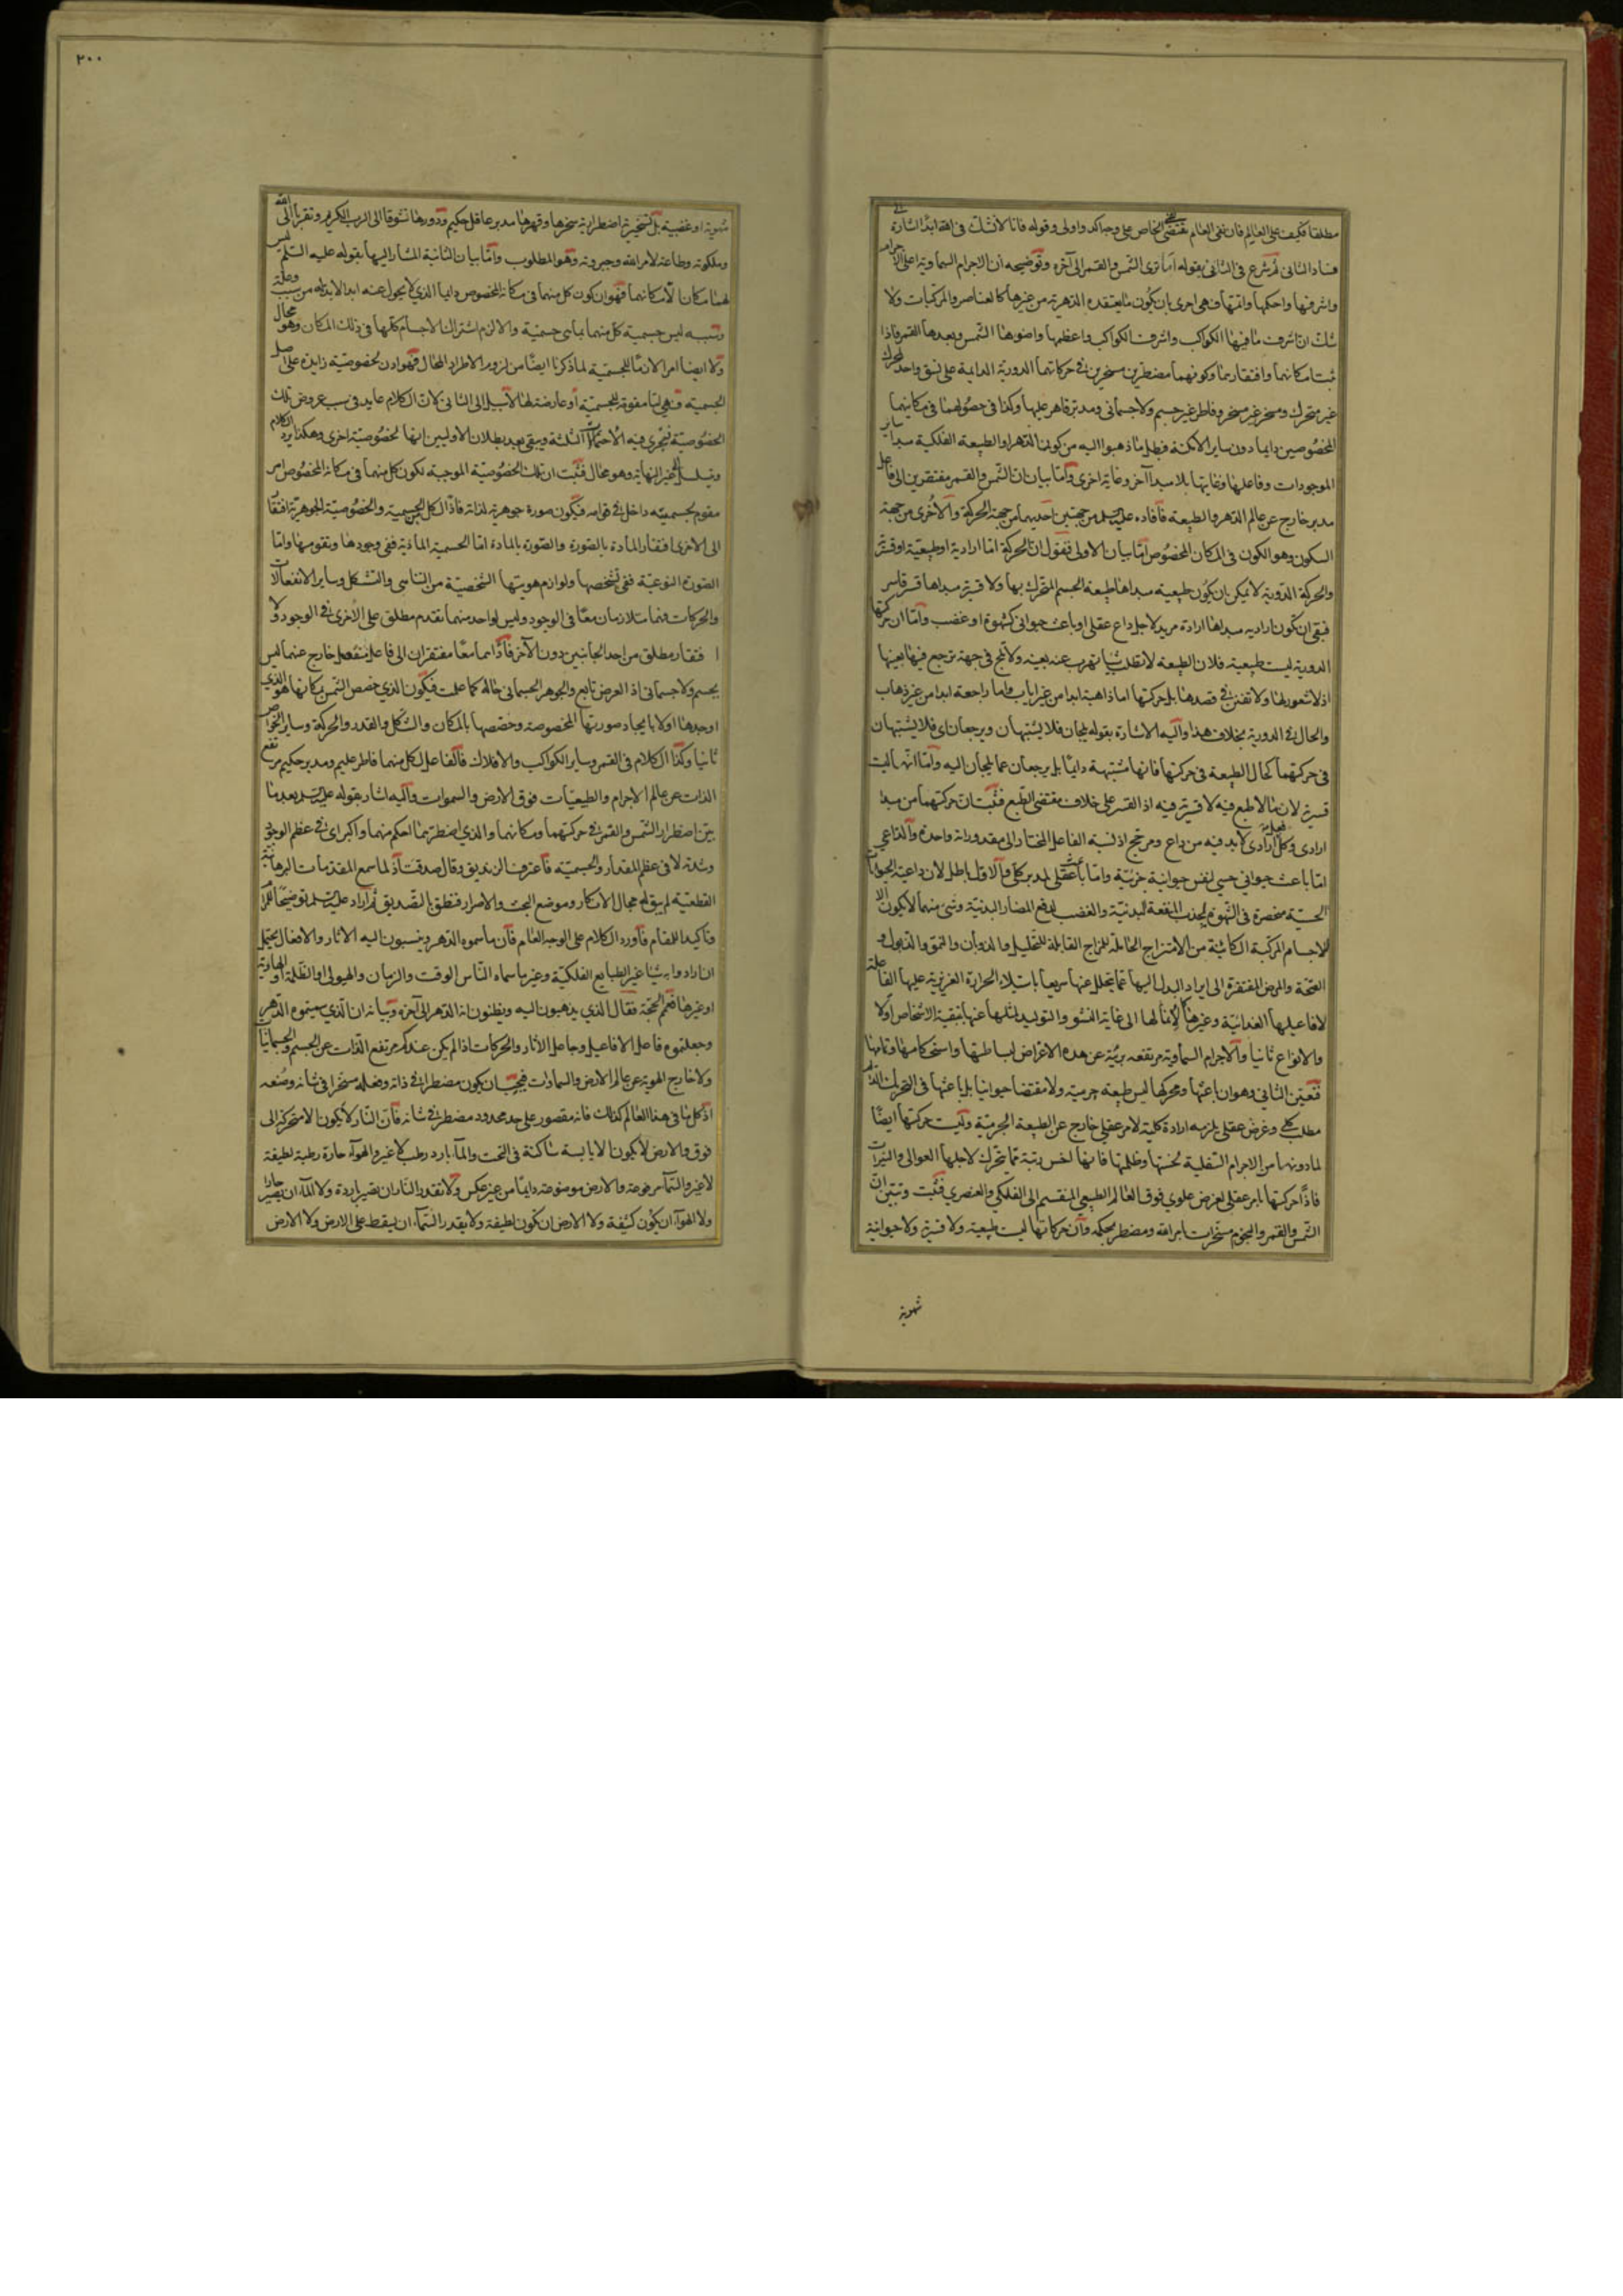 مطلقا فكيف على العالم فان نفى العالم يقتضى نفى الخاص على وجه اكد واولى وقوله فانا لا نشك فى الله ابدا اشارة الى
فساد الثانى ثم شرع فى الثانى بقوله اما ترى الشمس والقمر الى آخره وتوضيحه ان الاجرام السماوية اعلى الاجرام
واشرفها واحكمها واتمها فهى احرى بان يكون ما يعتقده الدهرية من غيرها كالعناصر والمركبات ولا
شك ان اشرف ما فيها الكواكب واشرف الكواكب واعظمها واضوءها الشمس وبعدها القمر فاذا
ثبت امكانهما وافتقارهما وكونهما مضطرين مسخرين فى حركاتهما الدورية الدايمة على نسق واحد لمحرك
غير متحرك ومسخر غير مسخر وفاطر غير جسم ولا جسمانى ومدبر قاهر عليها وكذا فى حصولهما فى مكانيهما
المخصوصين دايما دون ساير الامكنة فبطل ما ذهبوا اليه من كون الدهر او الطبيعة الفلكية مبدأ ساير
الموجودات وفاعلها وغايتها بلا مبدأ آخر وغاية اخرى واما بيان ان الشمس والقمر مفتقرين الى فاعل
مدبر خارج عن عالم الدهر والطبيعة فافاده عليه السلم من جهتين احديهما من جهة الحركة والاخرى من جهة
السكون وهو الكون فى المكان المخصوص اما بيان الاولى فنقول ان الحركة اما ارادية او طبيعية او قسرية
والحركة الدورية لا يمكن ان يكون طبيعية مبداها طبيعة الجسم المتحرك بها ولا قسرية مبداها قسر قاسر
فبقى ان تكون ارادية مبداها ارادة مريد لاجل داع عقلى او باعث حيوانى كشهوة او غضب واما ان حركتها
الدورية ليست طبيعية فلان الطبيعة لا تطلب شيئا تهرب عنه بعينه ولا تلج فى جهة ترجع فيها بعينها
اذ لا شعور لها ولا تفنن فى قصدها بل حركتها اما ذاهبة ابدا من غير اياب واما راجعة ابدا من غير ذهاب
والحال فى الدورية بخلاف هذا واليه الاشارة بقوله يلجان فلا يشتبهان ويرجعان اى فلا يشتبهان
فى حركتهما كحال الطبيعة فى حركتها فانها مشتبهة دايما بل يرجعان عما يلجان اليه واما انها ليست
قسرية لان ما لا طبع فيه لا قسر فيه اذ القسر على خلاف مقتضى الطبع فثبت ان حركتهما من مبدا
ارادى وكل فعل ارادى لا بد فيه من داع ومرجح اذ نسبة الفاعل المختار الى مقدوراته واحدة والداعى
اما باعث حيوانى حسى لنفس حيوانية جزئية واما باعث عقلى لمدبر كلى والاول باطل لان داعية الحيوان
الحسية منحصرة فى الشهوة لجذب المنفعة البدنية والغضب لدفع المضار البدنية وشىء منهما لا يكون الا
للاجسام المركبة الكائنة من الامتزاج الحاملة للمزاج القابلة للتحليل والذوبان والنمو والذبول و
الصحة والمرض المفتقرة الى ايراد البدل اليها عما يتحلل عنها سريعا باستيلاء الحرارة الغريزية عليها الفاعلة
لافاعيلها الغذائية وغيرها لامثالها الى غاية النشو والتوليد لمثلها عنها لتبقية الاشخاص اولا
والانواع ثانيا والاجرام السماوية مرتفعة بريئة عن هذه الاغراض لبساطتها واستحكامها وتمامها
فتعين الثانى وهو ان باعثها ومحركها ليس طبيعة جرمية ولا مقتضا حيوانيا بل باعثها فى التحريك الدائم
مطلب كلى وغرض عقلى يلزمه ارادة كلية لامر عقلى خارج عن الطبيعة الجرمية وليست حركتها ايضا
لما دونها من الاجرام السفلية لخستها وظلمتها فانها اخس رتبة مما يتحرك لاجلها العوالى والنيرات
فاذا حركتها بامر عقلى لغرض علوى فوق العالم الطبيعى المنقسم الى الفلكى والعنصرى فثبت وتبين ان
الشمس والقمر والنجوم مسخرات بامر الله ومضطر بحكمه وان حركاتها ليست طبيعية ولا قسرية ولا حيوانية
شهوية
٢٠٠
شهوية او غضبية بل تسخيرية اضطرارية سخرها وقهرها مدبر عاقل حكيم ودورها تشوقا الى الرب الكريم وتقربا الى الله
وملكوته وطاعة لامر الله وجبروته وهو المطلوب واما بيان الثانية المشار اليها بقوله عليه السلم ليس
لهما مكان الا مكانهما فهو ان كون كل منهما فى مكانه المخصوص دايما الذى لا يحول عنه ابدا لا بد له من سبب وعلة
وسببه ليس جسمية كل منهما بما هى جسمية والا لزم اشتراك الاجسام كلها فى ذلك المكان وهو محال
ولا ايضا امرا لازما للجسمية لما ذكرنا ايضا من لزوم الاطراد المحال فهو اذن لخصوصية زايدة على اصل
الجسمية فهى اما مقومة للجسمية او عارضة لها لا سبيل الى الثانى لان الكلام عايد فى سبب عروض تلك
الخصوصية فيجرى فيه الاحتمالات الثلثة ويبقى بعد بطلان الاوليين انها لخصوصية اخرى وهكذا يرد الكلام
ويتسلسل الى غير النهاية وهو محال فثبت ان تلك الخصوصية الموجبة لكون كل منهما فى مكانه المخصوص امر
مقوم لجسميته داخل فى قوامه فيكون صورة جوهرية لذاته فاذا لكل من الجسمية والخصوصية الجوهرية افتقار
الى الاخرى افتقار المادة بالصورة والصورة بالمادة اما الجسمية المادية ففى وجودها وتقومها واما
الصورة النوعية ففى تشخصها ولوازم هويتها الشخصية من التناهى والتشكل وساير الانفعالات
والحركات فهما متلازمان معا فى الوجود وليس لواحد منهما تقدم مطلق على الاخرى فى الوجود ولا
ا فتقار مطلق من احد الجانبين دون الآخر فاذا هما معا مفتقران الى فاعل منفصل خارج عنهما ليس
بجسم ولا جسمانى اذ العرض تابع والجوهر الجسمانى حاله كما علمت فيكون الذى خصص الشمس بمكانها هو الذى
اوجدها اولا بايجاد صورتها المخصوصة وخصصها بالمكان والشكل والقدر والحركة وساير الخواص
ثانيا وكذا الكلام فى القمر وساير الكواكب والافلاك فالفاعل لكل منهما فاطر عليم ومدبر حكيم مرتفع
الذات عن عالم الاجرام والطبيعيات فوق الارض والسموات واليه اشار بقوله عليه السلم بعد ما
بين اضطرار الشمس والقمر فى حركتهما ومكانهما والذى اضطرهما احكم منهما واكبر اى فى عظم الوجود
وشدته لا فى عظم المقدار والجسمية فاعترف الزنديق وقال صدقت اذ لما سمع المقدمات البرهانية
القطعية لم يبق له مجال الانكار وموضع البحث والاصرار فنطق بالتصديق ثم اراد عليه السلم توضيحا للمرام
وتاكيدا للمقام فاورد الكلام على الوجه العام فان ما سموه الدهر وينسبون اليه الاثار والافعال يحتمل
ان ارادوا به شيئا غير الطبايع الفلكية وغير ما سماه الناس الوقت والزمان والهيولى او الظلمة او الهاوية
او غيرها فعمم الحجة فقال الذى يذهبون اليه ويظنون انه الدهر الى آخره وبيانه ان الذى سميتموه الدهر
وجعلتموه فاعل الافاعيل وجاعل الاثار والحركات اذا لم يكن عندكم مرتفع الذات عن الجسم والجسمانيات
ولا خارج الهوية عن عالم الارض والسماوات فيجب ان يكون مضطرا فى ذاته وفعله مسخرا فى شانه وصنعه
اذ كل ما فى هذا العالم كذلك فانه مقصور على حد محدود مضطر فى شانه فان النار لا يكون الا متحركة الى
فوق والارض لا يكون الا يابسة ساكنة فى التحت والماء بارد رطب لا غير والهواء حارة رطبة لطيفة
لا غير والسماء مرفوعة والارض موضوعة دايما من غير عكس ولا تقدر النار ان تصير باردة ولا الماء ان يصير حارا
ولا الهواء ان يكون كثيفة ولا الارض ان تكون لطيفة ولا يقدر السماء ان يسقط على الارض ولا الارض